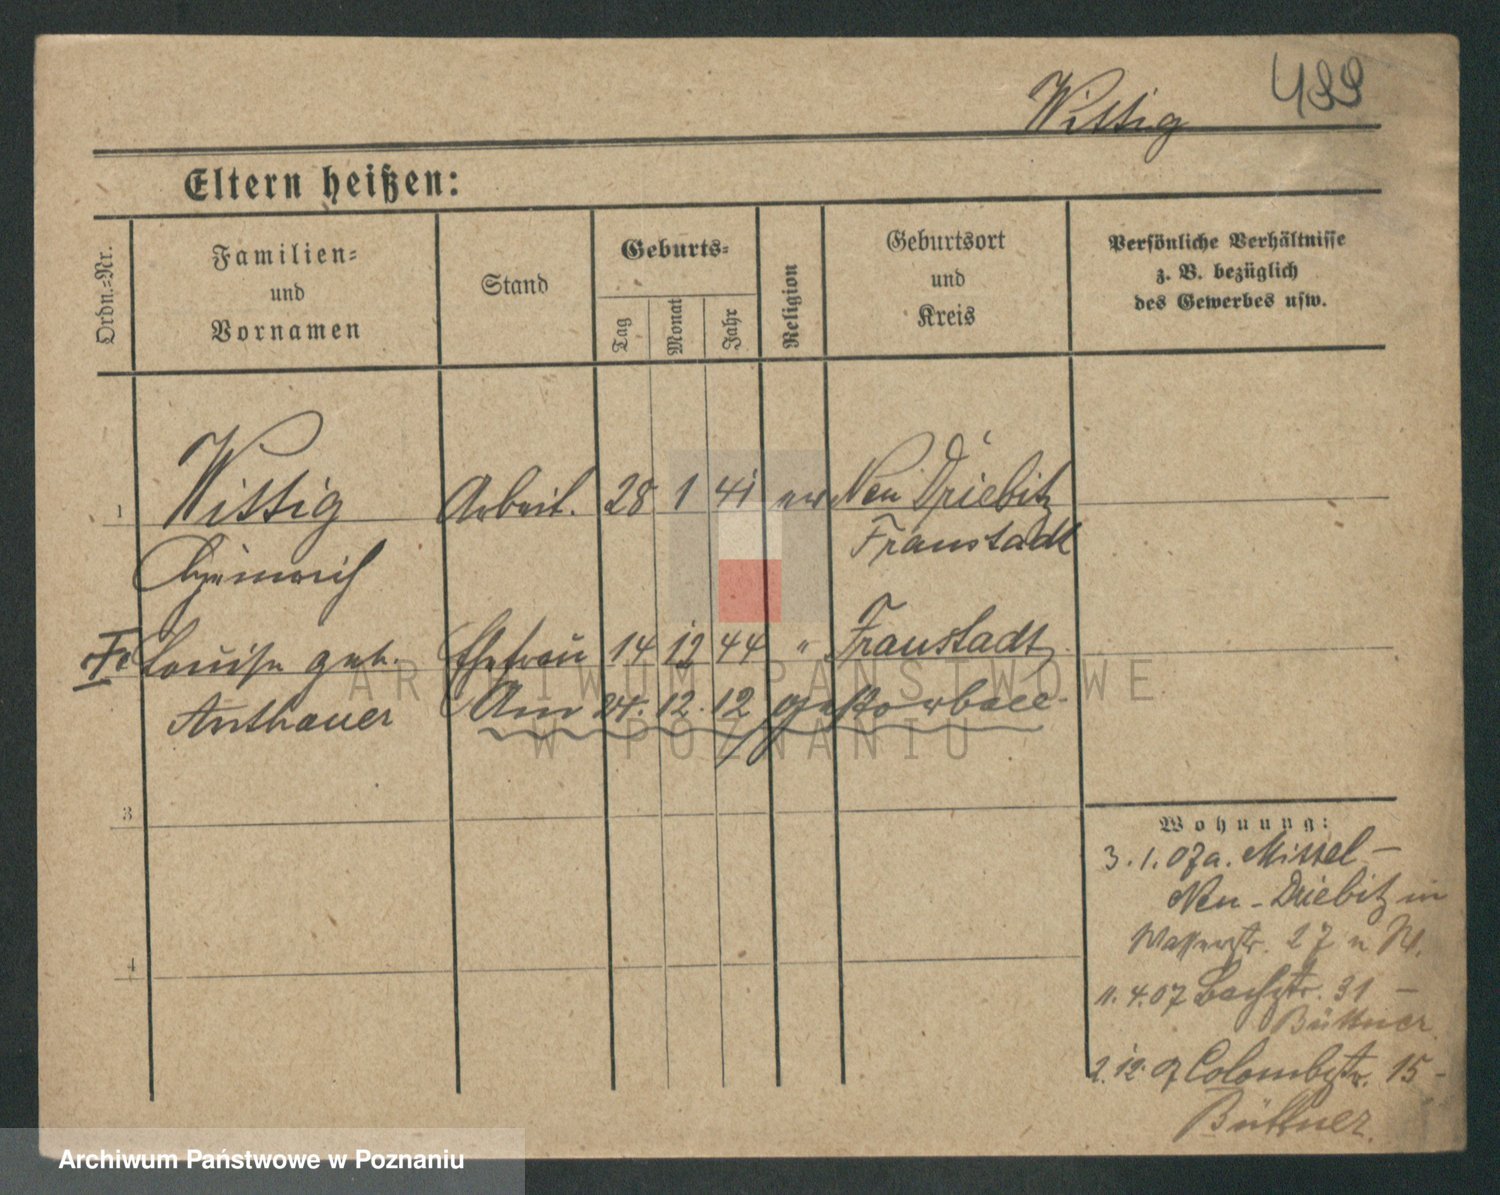 Wittig 499
Eltern heißen:
Ordn.-Nr.
Familien-
und
Vornamen
Stand
Geburts-
Tag
Monat
Jahr
Religion
Geburtsort
und
Kreis
Persönliche Verhältnisse
z. B. bezüglich
des Gewerbes usw.
1 Wittig Arbeit. 28 1 41 ev Neu Driebitz
Heinrich Fraustadt
Louise geb. Ehefrau 14 12 44 " Fraustadt
Anthauer Am 24. 12. 12 gestorben.
3
4
Wohnung:
3. 1. 07 a. Mittel-
Neu-Driebitz in
Wasserstr. 27 n W.
11. 4. 07 Bachstr. 31 -
Büttner
2. 12. 07 Colombstr. 15 -
Büttner.
ARCHIWUM PAŃSTWOWE
W POZNANIU
Archiwum Państwowe w Poznaniu